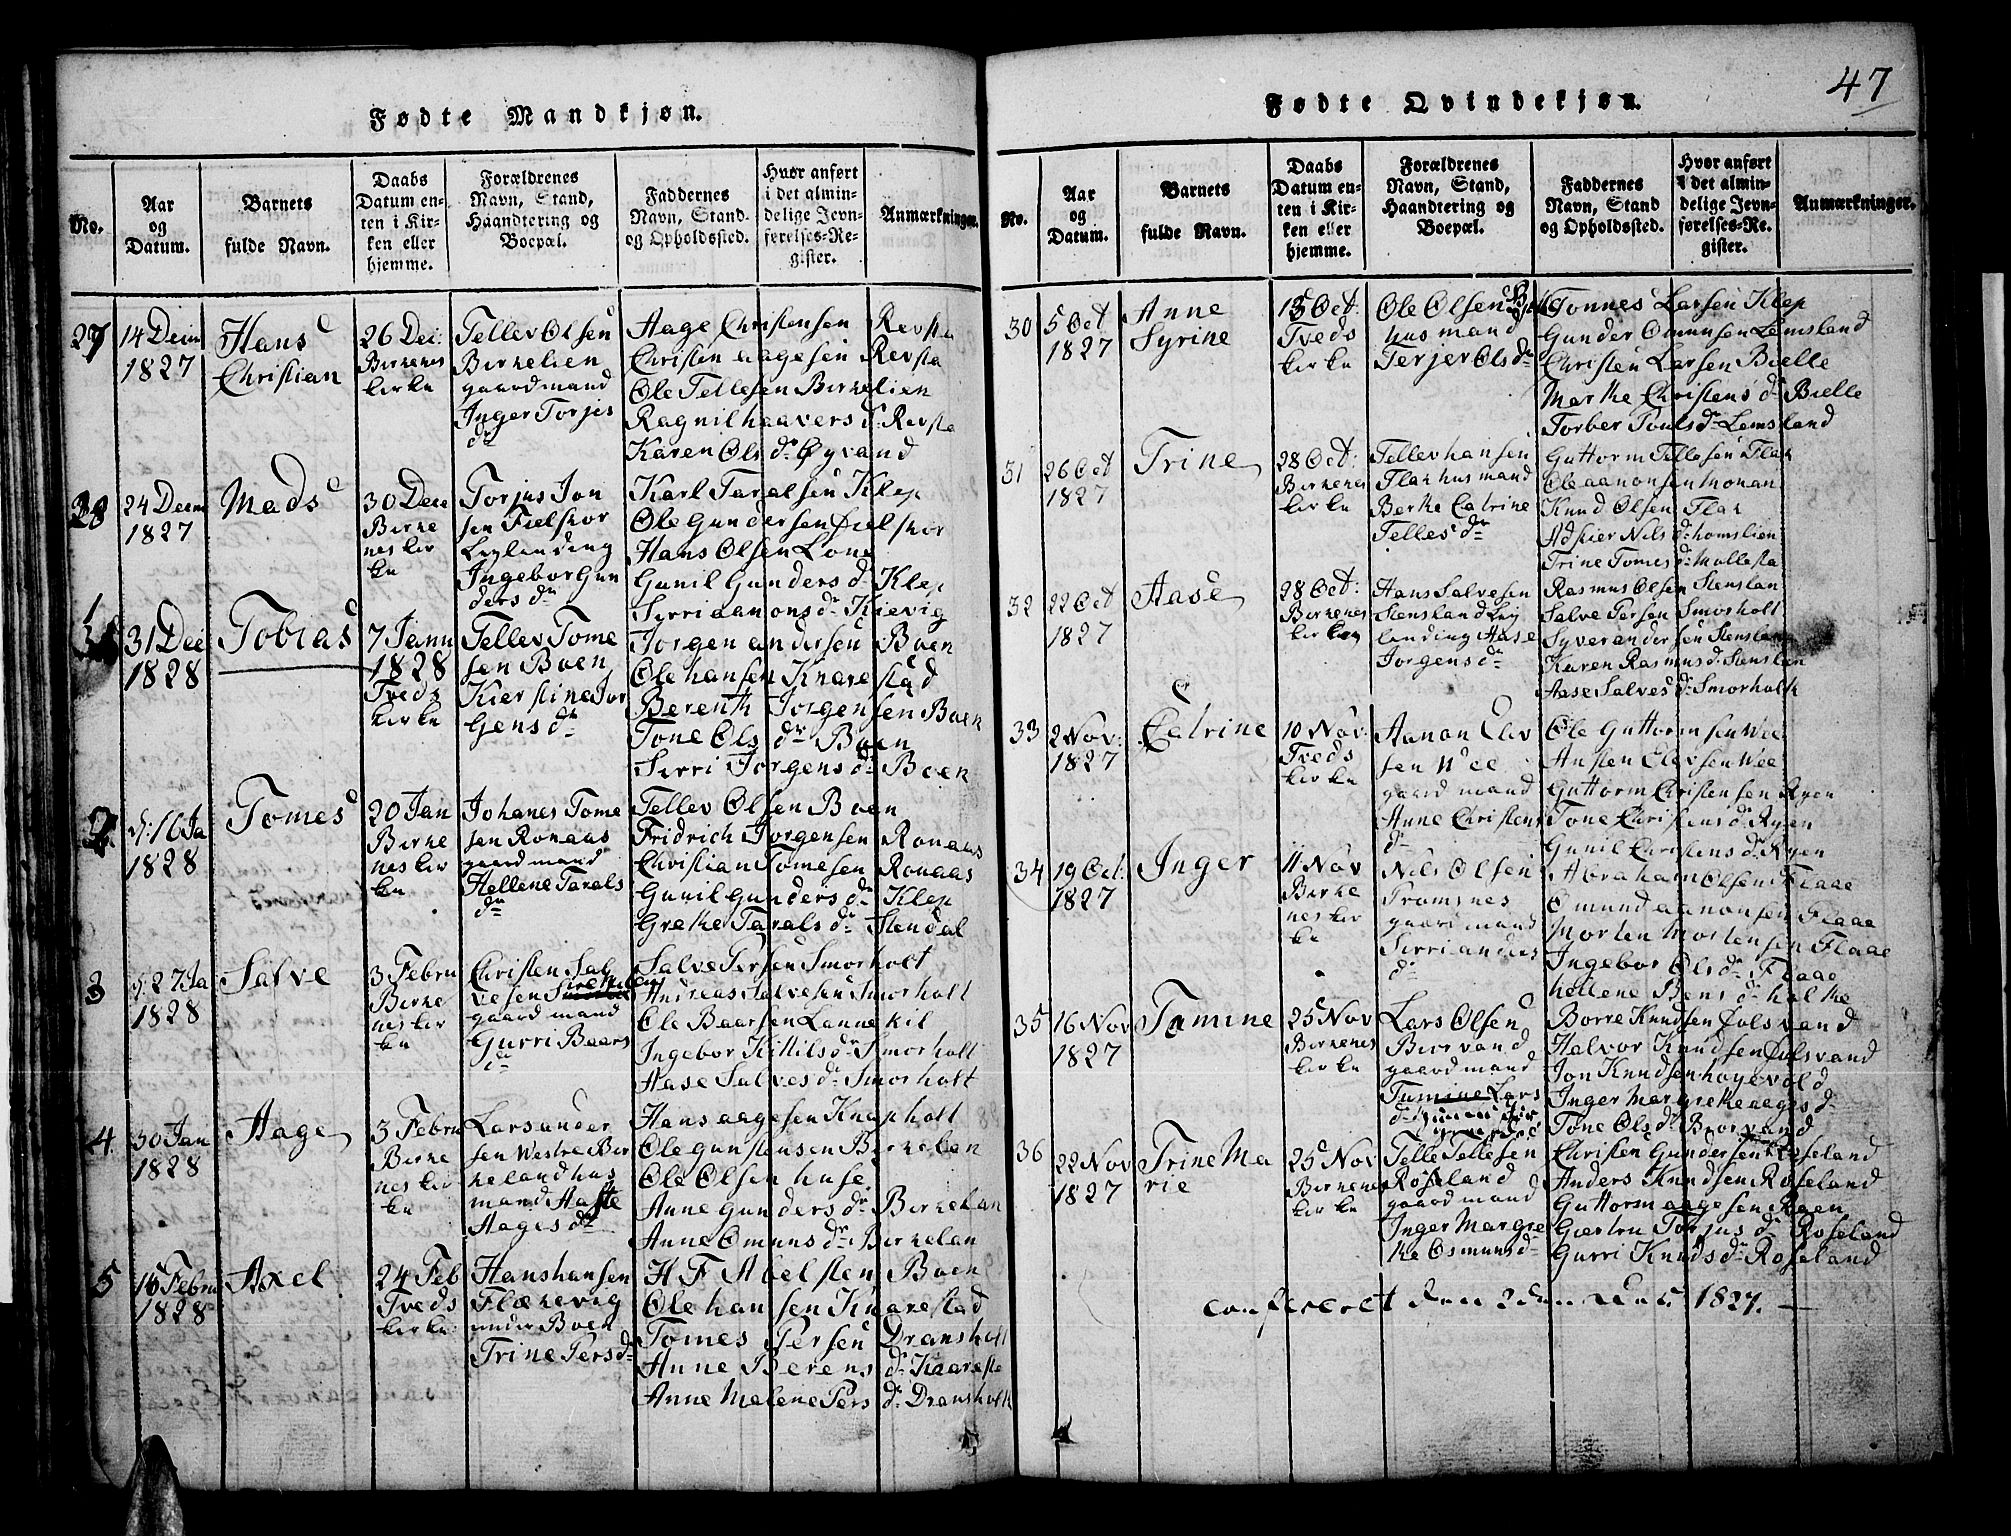 Fødte Mandkjøn.
No.
Aar
og
Datum.
Barnets
fulde Navn.
Daabs
Datum en-
ten i Kir-
ken eller
hjemme.
Forældrenes
Navn, Stand,
Haandtering og
Boepæl.
Faddernes
Navn, Stand
og Opholdssted.
Hvor anført
i det almin-
delige Jevn-
førelses-Re-
gister.
Anmærkninger.
27
14 Decm
1827
Hans
Christian
26 Dec:
Birkenes
kirke
Tellev Olsen
Birkelien
gaardmand
Inger Torjes
dr
Aage Christensen Revsta
Christen aagesen Revsta
Ole Tellesen Birkelien
Ragnil haavers d. Revsta
Karen Ols dr Øyvand
28
24 Decm
1827
Mads
30 Dece
Birke
nes kir
ke
Torjus Jon
sen Fielskor
Leylending
Ingebor Gun
ders dr
Karl Taralsen Klep
Ole Gundersen Fielskor
Hans Olsen Lone
Gunil Gunders d. Klep
Sirri aanons dr Kievig
1
31 Dec
1828
Tobias
7 Janu
1828
Tveds
kirke
Tellev Tome
sen Boen
Kierstine Jor
gens dr
Jorgen andersen Boen
Ole hansen Knarestad
Berenth Jorgensen Boen
Tone Ols dr Boen
Sirri Jorgens dr Boen
2
d: 16 Ja
1828
Tomes
20 Jan
Birke
nes kir
ke
Johanes Tome
sen Ronaas
gaardmand
Hellene Tarals
dr
Tellev Olsen Boen
Fridrich Jorgensen Ronaas
Christian Tomesen Ronaas
Gunil Gunders dr Klep
Grethe Tarals dr Stendal
3
d: 27 Ja
1828
Salve
3 Febru
Birke
nes kir
ke
Christen Sal
vesen
gaardmand
Gurri Baars
dr
Salve Tersen Smorholt
Andreas Salvesen Smorholt
Ole Baarsen Lannekil
Ingebor Kittils dr Smorholt
Aase Salves dr Smorholt
4
30 Jan
1828
Aage
3 Febru
Birke
nes kir
ke
Lars ander
sen Westre Bir
keland hus
mand Aaste
Aages dr
Hans aagesen Knapholt
Ole Gunstensen Birkelan
Ole Olsen huse
Anne Gunders dr Birkelan
Anne Omuns dr Birkelan
5
15 Febru
1828
Axel
24 Feb
Tveds
kirke
Hans hansen
Flakevig
under Boen
Trine Pers d
H F Abelsten Boen
Ole hansen Knarestad
Tomes Persen Dransholt
Anne Berens d. Knareste
Anne Malene Pers d. Dransholt
47
Fødte Qvindekjøn.
No.
Aar
og
Datum.
Barnets
fulde Navn.
Daabs
Datum en-
ten i Kir-
ken eller
hjemme.
Forældrenes
Navn, Stand,
Haandtering og
Boepæl.
Faddernes
Navn, Stand
og Opholdssted.
Hvor anført
i det almin-
delige Jevn-
førelses-Re-
gister.
Anmærkninger.
30
5 Oct
1827
Anne
Syrine
Oct:
Tveds
kirke
Ole Olsen
husmand
Terjer Ols dr
Tonnes Larsen Klep
Gunder Omunsen Lemsland
Christen Larsen Bielle
Marthe Christens d. Bielle
Torber Touls dr Lemsland
31
26 Oct
1827
Trine
28 Oct:
Birkenes
kirke
Tellev hansen
Flak husmand
Berthe Catrine
Telles dr
Guttorm Tellesen Flak
Ole aanonsen monan
Knud Olsen Flak
Adsier Nils dr homslien
Trine Tomes dr Mollesta
32
22 Oct
1827
Aase
28 Oct:
Birkenes
kirke
Hans Salvesen
Stensland Ley
lending Aase
Jorgens dr
Rasmus Olsen Stenslan
Salve Tersen Smorholt
Syver andersen Stensland
Karen Rasmus d. Stenslien
Aase Salves d. Smorholt
33
2 Nov:
1827
Catrine
10 Nov:
Tveds
kirke
Aanon Elev
sen Wee
gaard mand
Anne Christens
dr
Ole Guttormsen Wee
Austen Elevsen Wee
Guttorm Christensen Ryen
Tone Christens d. Ryen
Gunil Christens d. Ryen
34
19 Oct:
1827
Inger
11 Nov
Birke
nes kir
ke
Nils Olsen
Tromsnes
gaardmand
Sirri andres
dr
Abraham Olsen Flaae
Omund aanonsen Flaae
Morten Mortensen Flaae
Ingebor Ols dr Flaae
hellene Bens d. halthe
35
16 Nov
1827
Tamine
25 Nov
Birkenes
kirke
Lars Olsen
Biorvand
gaardmand
Tumine Lars
Borre Knudsen Julsvand
Halvor Knudsen Julsvand
Jon Knudsen hogevold
Inger Margrethe aages d.
Tone Ols dr Biorvand
36
22 Nov
1827
Trine Ma
rie
25 Nov
Birkenes
kirke
Telle Tellesen
Roseland
gaard mand
Inger Margre
the Osmuns dr
Christen Gundersen Roseland
Anders Knudsen Roseland
Guttorm aagesen Ryen
Giertru Torjus d. Roseland
Gurri Knuds dr Roseland
confereret den 2den 1827.